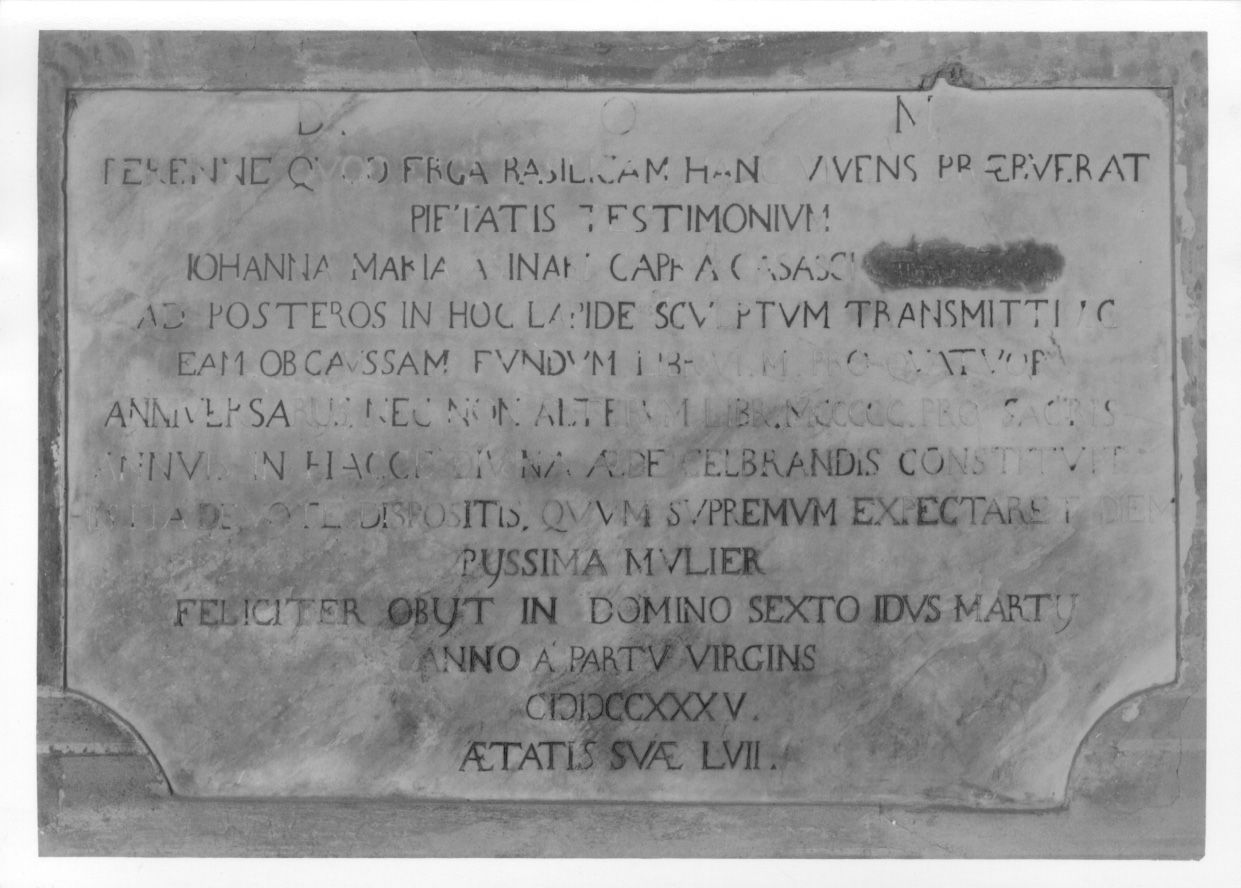 D. O M
PERENNE QVOD ERGA BASILICAM HANC VIVENS PRÆBVERAT
PIETATIS TESTIMONIVM
IOHANNA MARIA CAPRA
AD POSTEROS IN HOC LAPIDE SCVLPTVM TRANSMITTI AC
EAM OB CAVSSAM FVNDVM LIBR. PRO QVATVOR
ANNIVERSARIIS, NEC NON ALTERVM LIBR. MCCCCC. PRO SACRIS
ANNVIS IN HACCE DIVINA ÆDE CELBRANDIS CONSTITVIT
ITA DEVOTE DISPOSITIS, QVVM SVPREMVM EXPECTARET DIEM
PIJSSIMA MVLIER
FELICITER OBIJT IN DOMINO SEXTO IDVS MARTIJ
ANNO A PARTV VIRGINS
CIƆIƆCCXXXV.
ÆTATIS SVÆ LVII.